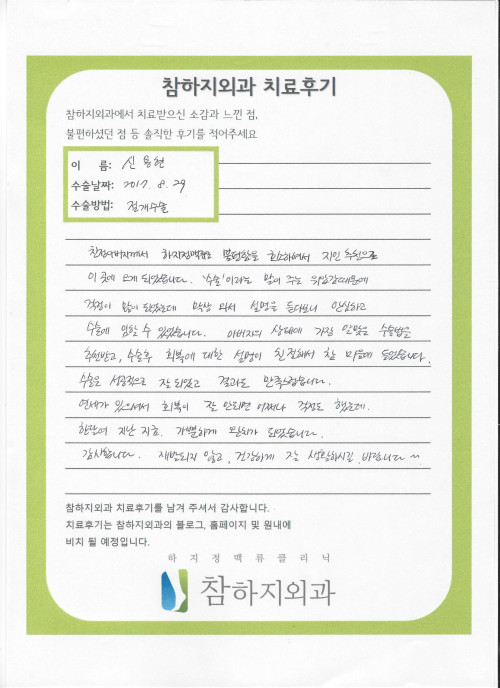 참하지외과 치료후기
참하지외과에서 치료받으신 소감과 느낀 점,
불편하셨던 점 등 솔직한 후기를 적어주세요
이 름: 신용현
수술날짜: 2017. 8. 29
수술방법: 절개수술
친정아버지께서 하지정맥류로 불편함을 호소하셔서 지인 추천으로
이 곳에 오게 되었습니다. '수술'이라는 말이 주는 위압감때문에
걱정이 많이 되었는데 막상 와서 설명을 듣다보니 안심하고
수술에 임할 수 있었습니다. 아버지의 상태에 가장 알맞은 수술법을
추천받고, 수술후 회복에 대한 설명이 친절해서 참 마음에 들었습니다.
수술은 성공적으로 잘 되었고 결과도 만족스럽습니다.
연세가 있으셔서 회복이 잘 안되면 어쩌나 걱정도 했는데.
한달여 지난 지금. 가뿐하게 완치가 되었습니다.
감사합니다. 재발되지 않고, 건강하게 잘 생활하시길 바랍니다~
참하지외과 치료후기를 남겨 주셔서 감사합니다.
치료후기는 참하지외과의 블로그, 홈페이지 및 원내에
비치 될 예정입니다.
하지정맥류클리닉
참하지외과